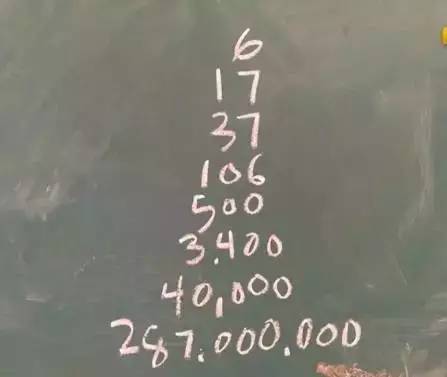 6
17
37
106
500
3.400
40,000
287.000.000